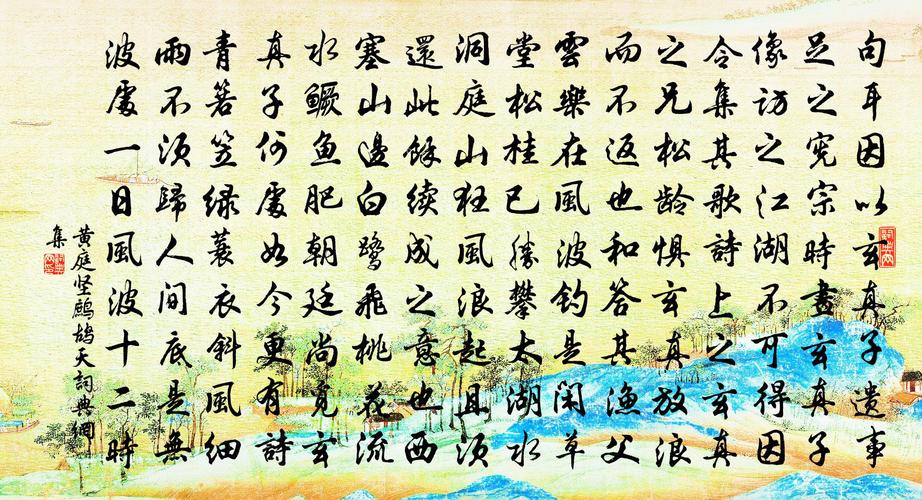 句耳因以玄真子遗事
足之宪宗時畫玄真子
像访之江湖不可得因
令集其歌詩上之玄真
之兄松龄惧玄真放浪
而不返也和答其渔父
雲樂在風波钓是闲草
堂松桂已勝攀太湖水
洞庭山狂風浪起且须
還此餘续成之意也西
塞山邊白鹭飛桃花流
水鳜鱼肥朝廷尚覓玄
真子何處如今更有詩
青箬笠绿蓑衣斜風细
雨不须歸人间底是無
波處一日風波十二時
黄庭坚鹧鸪天詞典網
集